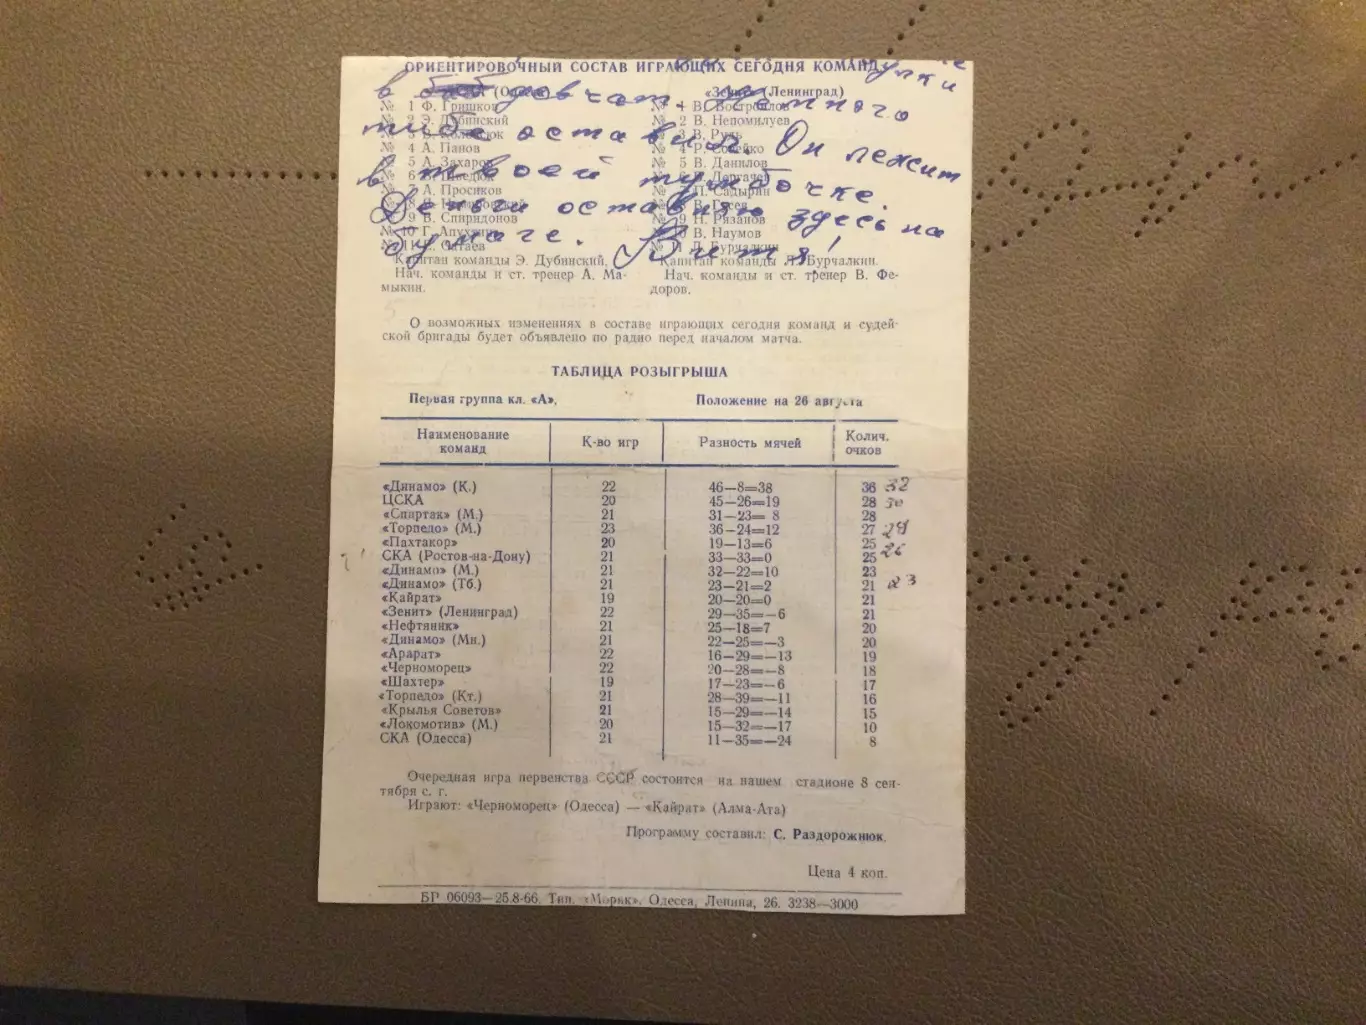 ОРИЕНТИРОВОЧНЫЙ СОСТАВ ИГРАЮЩИХ СЕГОДНЯ КОМАНД
«Зенит» (Ленинград)
№ 1 Ф. Гришков
№ 2 Э. Дубинский
№ 4 А. Панов
№ 5 А. Захаров
А. Просяков
№ 9 В. Спиридонов
№ 10 Г.
№ 2 В. Непомилуев
№ 3 В. Рудь
№ 4 Р.
№ 5 В. Данилов
П. Садырин
В. Гусев
№ 9 Н. Рязанов
В. Наумов
Л. Бурчалкин
оставил. Он лежит
в твоей тумбочке.
Деньги оставляю здесь на
бумаге. Витя!
Капитан команды Э. Дубинский.
Нач. команды и ст. тренер А. Ма-
мыкин.
Капитан команды Л. Бурчалкин.
Нач. команды и ст. тренер В. Фе-
доров.
О возможных изменениях в составе играющих сегодня команд и судей-
ской бригады будет объявлено по радио перед началом матча.
ТАБЛИЦА РОЗЫГРЫША
Первая группа кл. «А», Положение на 26 августа
Наименование команд К-во игр Разность мячей Колич. очков
«Динамо» (К.) 22 46—8=38 36 32
ЦСКА 20 45—26=19 28 30
«Спартак» (М.) 21 31—23= 8 28
«Торпедо» (М.) 23 36—24=12 27 29
«Пахтакор» 20 19—13=6 25 26
СКА (Ростов-на-Дону) 21 33—33=0 25
«Динамо» (М.) 21 32—22=10 23
«Динамо» (Тб.) 21 23—21=2 21 23
«Кайрат» 19 20—20=0 21
«Зенит» (Ленинград) 22 29—35=—6 21
«Нефтяник» 21 25—18=7 20
«Динамо» (Мн.) 21 22—25=—3 20
«Арарат» 22 16—29=—13 19
«Черноморец» 22 20—28=—8 18
«Шахтер» 19 17—23=—6 17
«Торпедо» (Кт.) 21 28—39=—11 16
«Крылья Советов» 21 15—29=—14 15
«Локомотив» (М.) 20 15—32=—17 10
СКА (Одесса) 21 11—35=—24 8
Очередная игра первенства СССР состоится на нашем стадионе 8 сен-
тября с. г.
Играют: «Черноморец» (Одесса) — «Кайрат» (Алма-Ата)
Программу составил: С. Раздорожнюк.
Цена 4 коп.
БР 06093—25.8-66. Тип. «Моряк», Одесса, Ленина, 26. 3238—3000